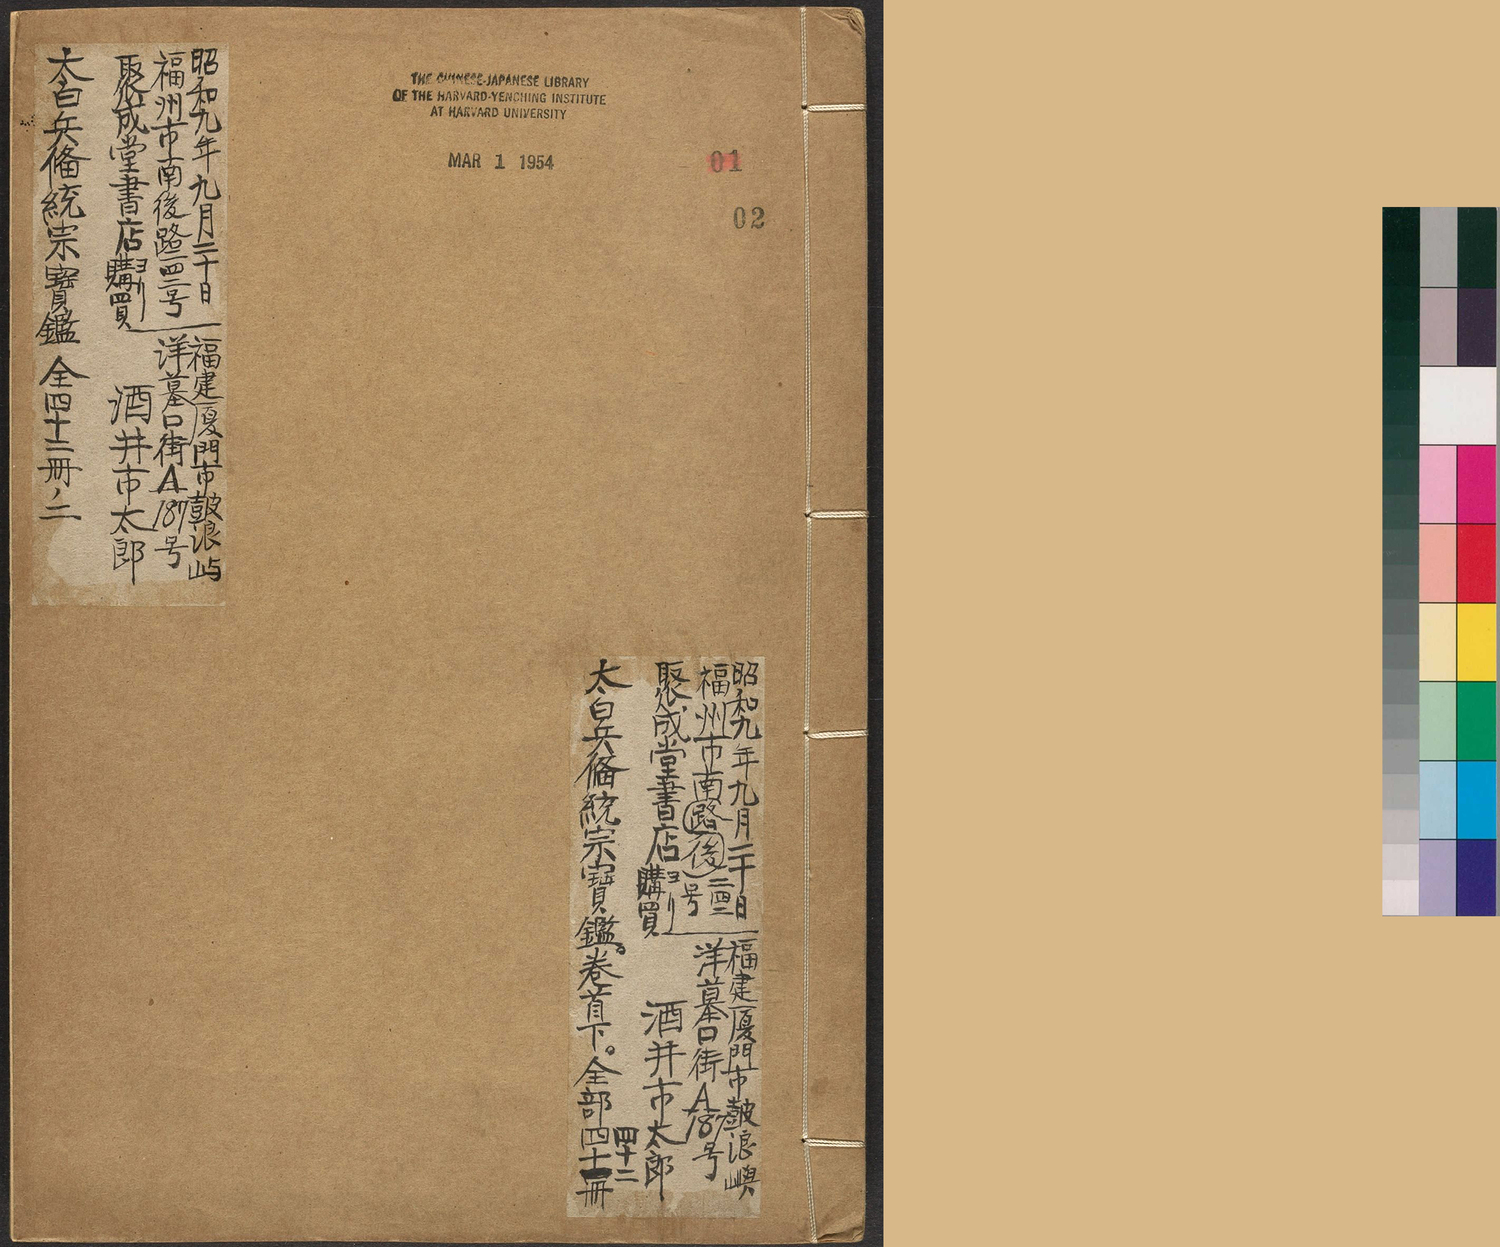 THE CHINESE-JAPANESE LIBRARY
OF THE HARVARD-YENCHING INSTITUTE
AT HARVARD UNIVERSITY
MAR 1 1954
01
02
昭和九年九月二十日
福州市南後路二四二号
聚成堂書店ヨリ
購買
福建厦門市鼓浪屿
洋墓口街A187号
酒井市太郎
太白兵俻統宗寶鑑 全四十二冊ノ二
昭和九年九月二十日
福州市南路後二四二号
聚成堂書店ヨリ
購買
福建厦門市鼓浪嶼
洋墓口街A187号
酒井市太郎
四十二
太白兵俻統宗寶鑑。卷首下。全部四十冊